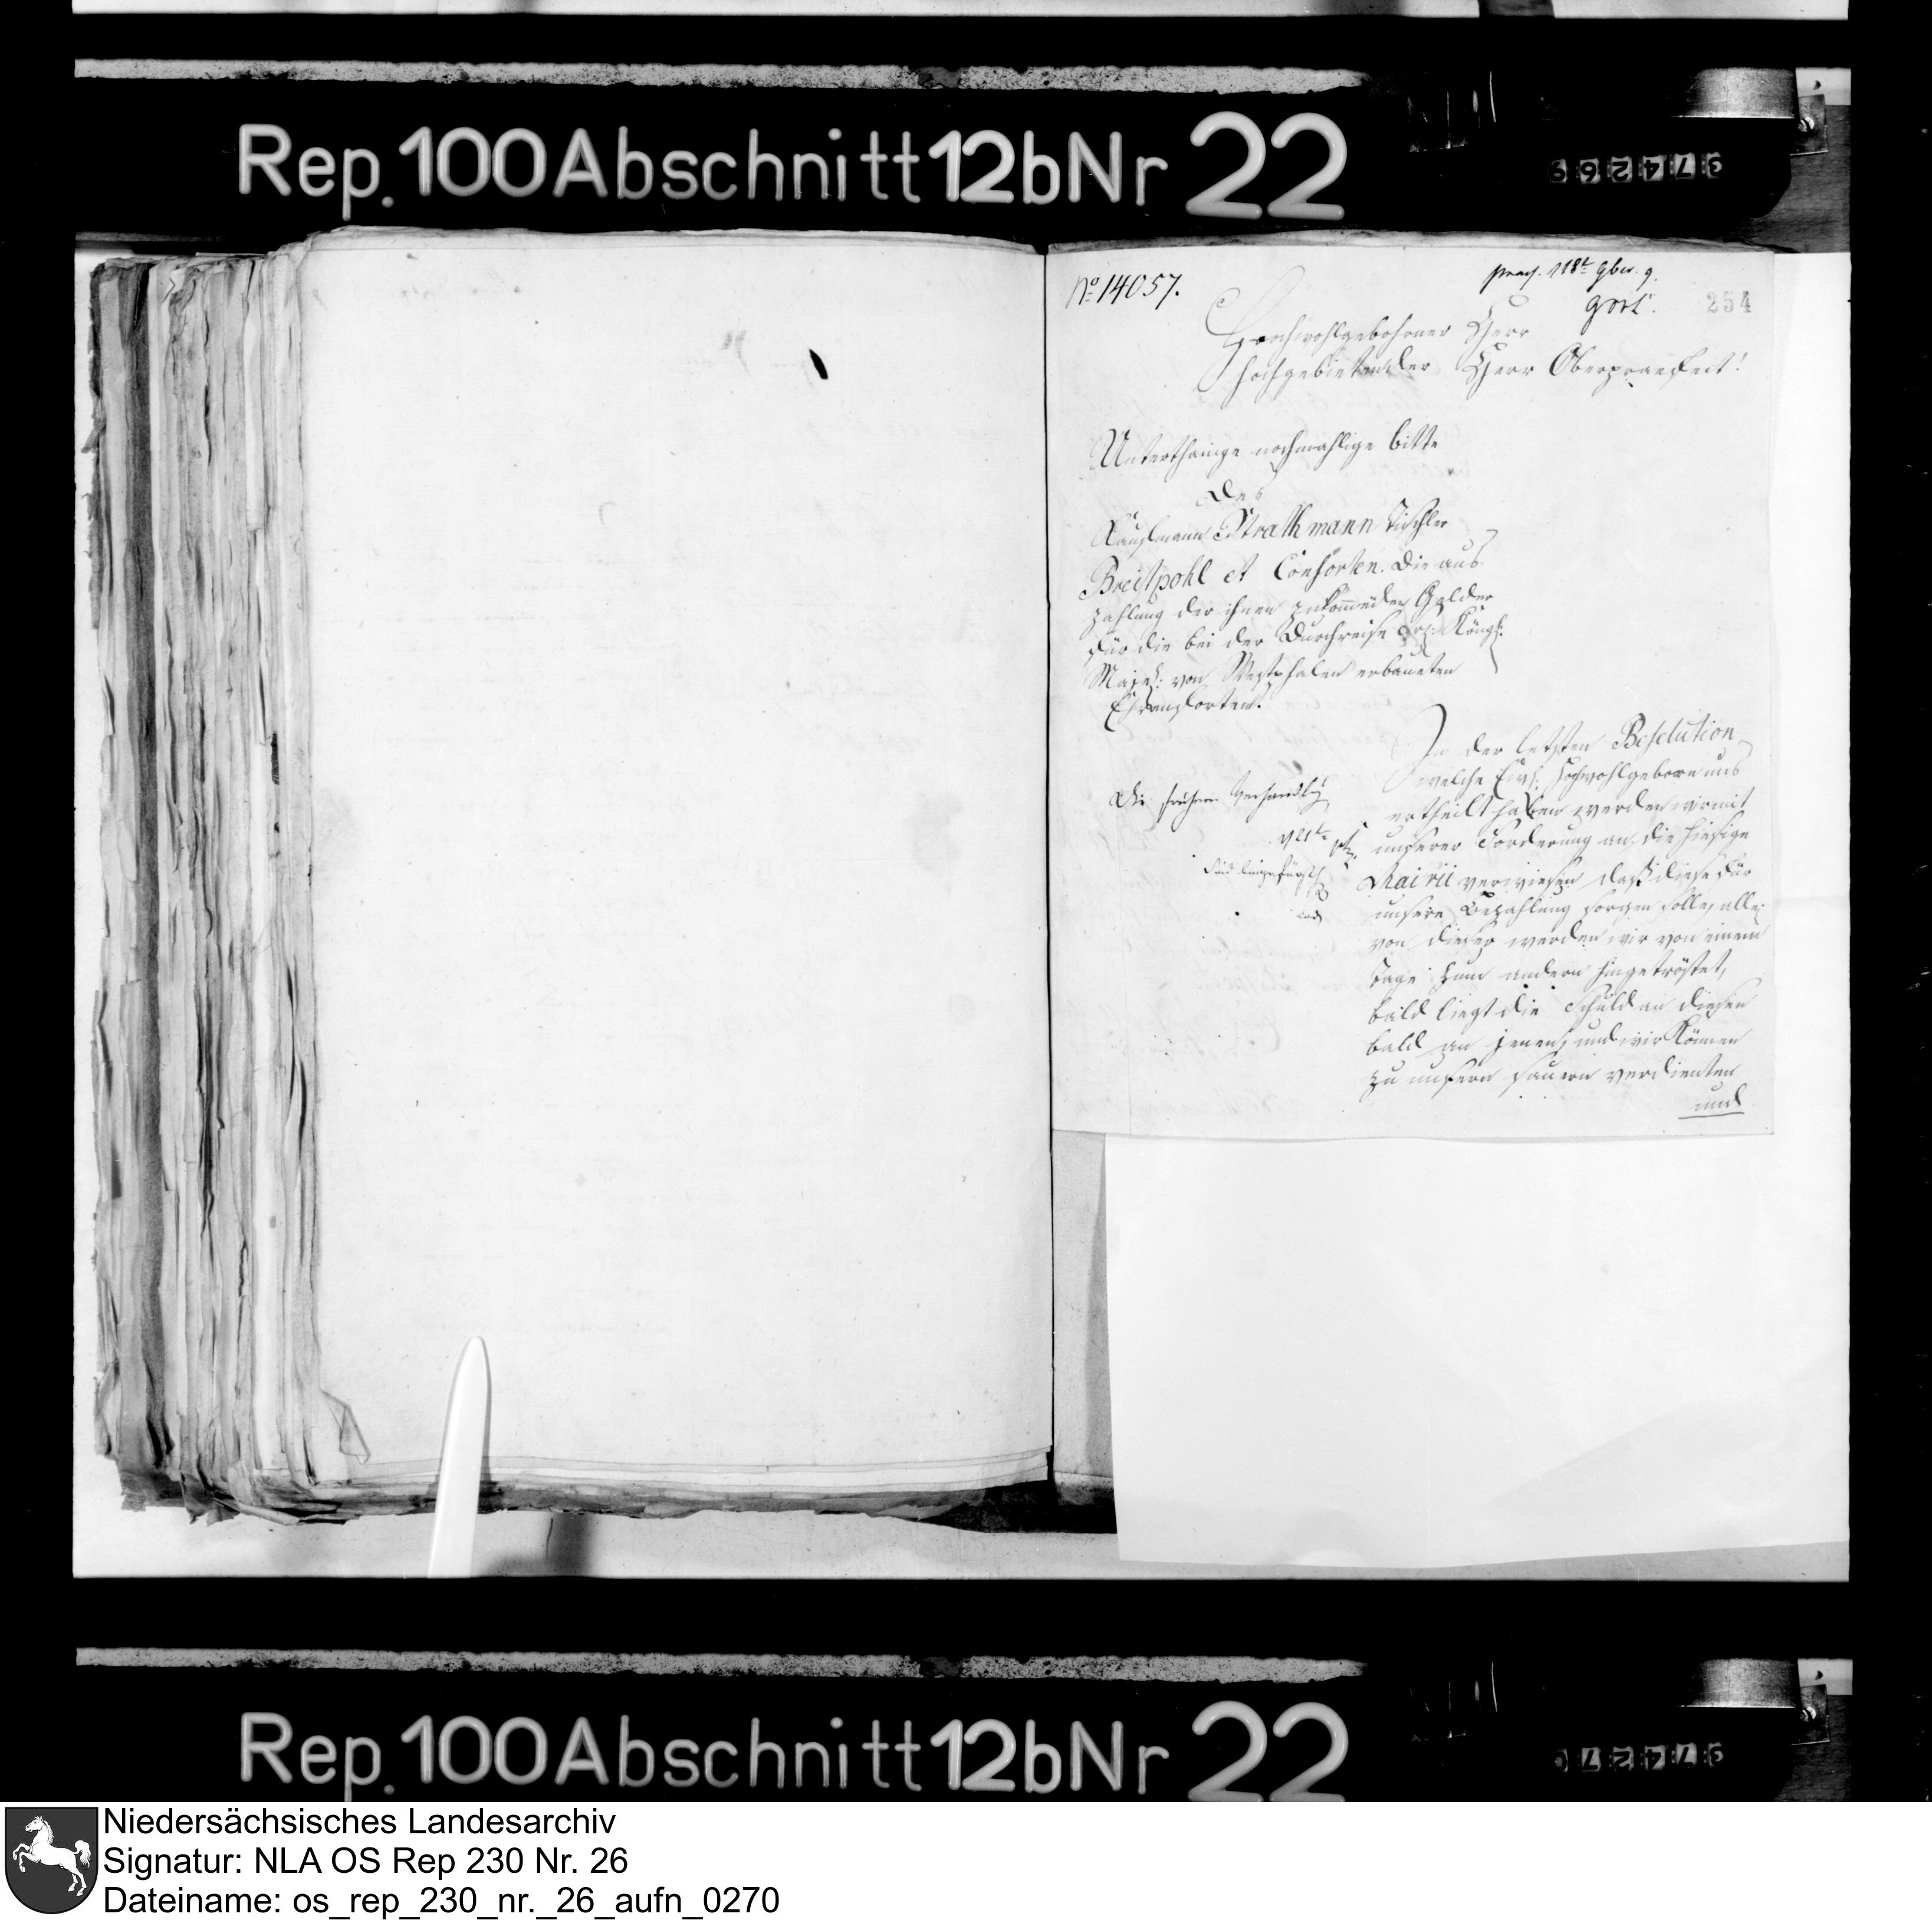 Rep. 100 Abschnitt 12b Nr 22
374269
No 14057.
praes. 18t 9br. 9.
254
Hochwohlgebohrner Herr
hochgebietender Herr Oberpraefect!
Unterthänige nochmahlige bitte
des
Kaufmann Strathmann Tischler
Breitpohl et Consorten. Die aus
zahlung der ihnen zukommenden Gelder
für die bei der Durchreise Sr: Königl:
Majest: von Westphalen erbaueten
Ehrenpforten.
In der letzten Resolution
welche Ew: Hochwohlgeborn uns
ertheilt haben werden wir mit
unserer Forderung an die hiesige
Mairii verwiesen daß diese für
unsere Bezahlung sorgen solle, allei
von dieser werden wir von einem
Tage zum andern hingetröstet,
bald liegt die Schuld an diesen
bald an jenen, und wir Können
zu unsern sauern verdienten
und
Die frühern Verhandlg
sind beigefügt
Rep. 100 Abschnitt 12b Nr 22
Niedersächsisches Landesarchiv
Signatur: NLA OS Rep 230 Nr. 26
Dateiname: os_rep_230_nr._26_aufn_0270